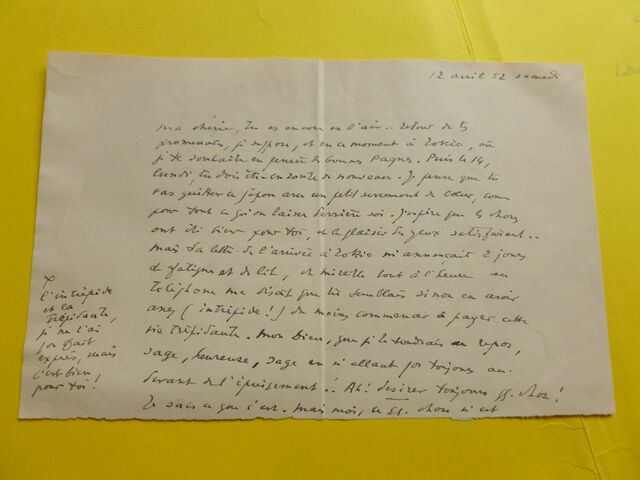 12 avril 52 samedi
ma chérie, tu es encore en l'air .. retour de tes
promenades, je suppose, et en ce moment à Tokio, où
je te souhaite en pensée de bonnes Pâques. Puis le 14,
lundi, tu dois être en route de nouveau. Je pense que tu
vas quitter ce Japon avec un petit serrement de cœur, comme
pour tout ce qu'on laisse derrière soi. J'espère que les choses
ont été bien pour toi, et le plaisir des yeux satisfaisant ..
mais ta lettre de l'arrivée à Tokio m'annonçait 2 jours
de fatigue et de lit, et tout à l'heure au
téléphone me disait que tu semblais sinon en avoir
assez (intrépide !) du moins commencer à payer cette
vie trépidante. Mon Dieu, que je te voudrais au repos,
sage, heureuse, sage en n'allant pas toujours au
devant de l'épuisement ! Ah ! désirer toujours qq. chose !
Je sais ce que c'est. Mais moi, ce qq. chose n'est
x
l'intrépide
et la
trépidante,
je ne l'ai
pas fait
exprès, mais
c'est bien
pour toi !